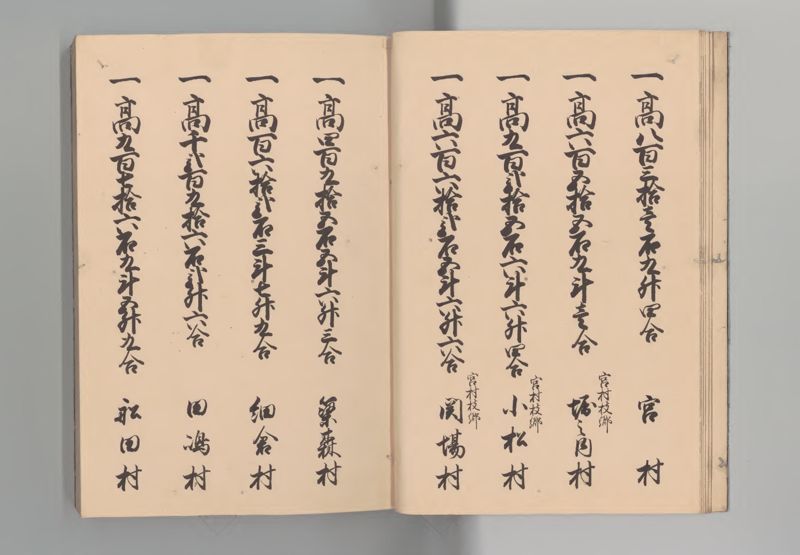 一高八百三拾壱石九升四合 宮村
一高六百五拾五石九斗壱合 宮村枝郷 堀之内村
一高九百弐拾五石六斗六升四合 宮村枝郷 小松村
一高六百六拾弐石五斗六升六合 宮村枝郷 関場村
一高四百九拾五石五斗六升三合 築森村
一高百六拾弐石三斗七升九合 細倉村
一高千弐百九拾六石弐升六合 田嶋村
一高九百七拾六石九斗五升九合 松田村